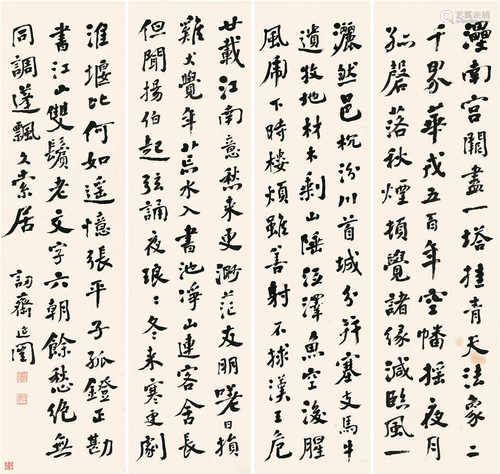 南宮闕盡一塔挂青天法象二
千界華戎五百年空幡搖夜月
孤磬落秋煙頓覺諸緣減臨風一
灑然邑枕汾川首城分幷塞支馬牛
遺牧地材木剩山陲澤魚空後腥
風虎下時樓煩雖善射不捄漢王危
廿載江南意愁来更渺茫友朋嗟日損
雞犬覺年荒水入書池淨山連客舍長
但聞揚伯起弦誦夜琅々冬来寒更劇
淮堰比何如遥憶張平子孤鐙正勘
書江山雙鬢老文字六朝餘愁絶無
同調蓬飄久索居
訒齋